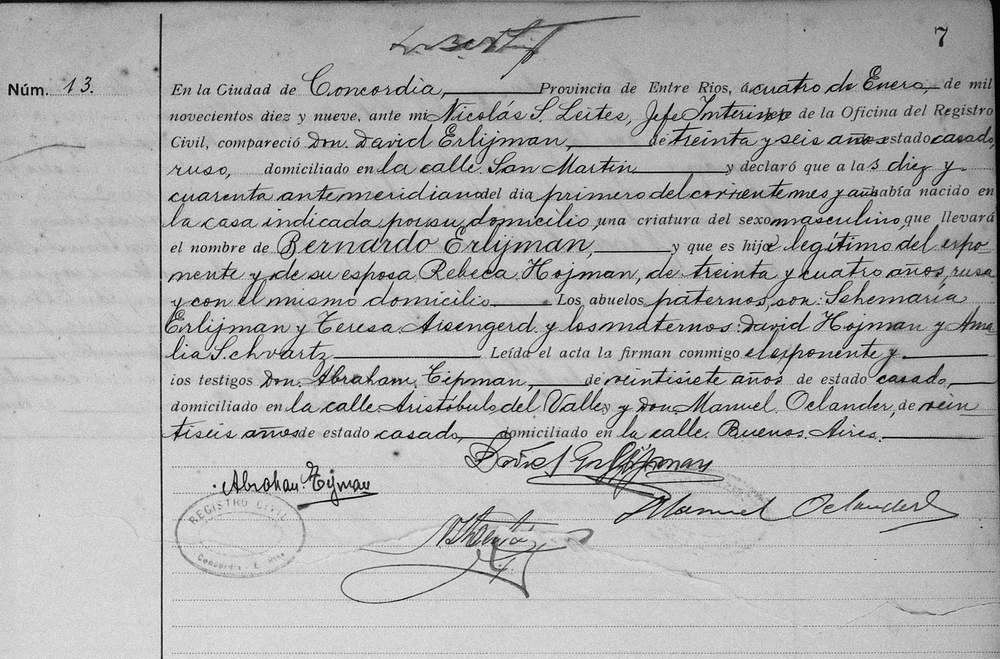 7
Núm. 13.
En la Ciudad de Concordia, Provincia de Entre Rios, á cuatro de Enero de mil
novecientos diez y nueve, ante mi Nicolás S. Leites, Jefe Interino de la Oficina del Registro
Civil, compareció Don David Erlijman, de treinta y seis años estado casado,
ruso, domiciliado en la calle San Martin y declaró que a las diez y
cuarenta antemeridiano del dia primero del corriente mes y año había nacido en
la casa indicada por su domicilio, una criatura del sexo masculino, que llevará
el nombre de Bernardo Erlijman, y que es hijo legítimo del expo-
nente y de su esposa Rebeca Hojman, de treinta y cuatro años, rusa
y con el mismo domicilio. Los abuelos paternos, son: Schemaría
Erlijman y Teresa Aisengerd. y los maternos: David Hojman y Ama
lia Schvartz Leída el acta la firman conmigo el exponente y
los testigos Don Abraham Tipman, de veintisiete años de estado casado,
domiciliado en la calle Aristóbulo del Valle y Don Manuel Oclander, de vein
tiseis años de estado casado, domiciliado en la calle Buenos Aires.
David Erlijman
Abrahan Tijman
Manuel Oclander
REGISTRO CIVIL
Concordia E. Rios